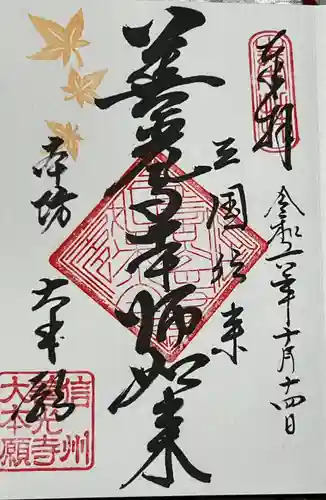 奉拝
令和六年十月十四日
三国伝来
善光寺本師如来
本坊
大本願
信州
善光寺
大本願